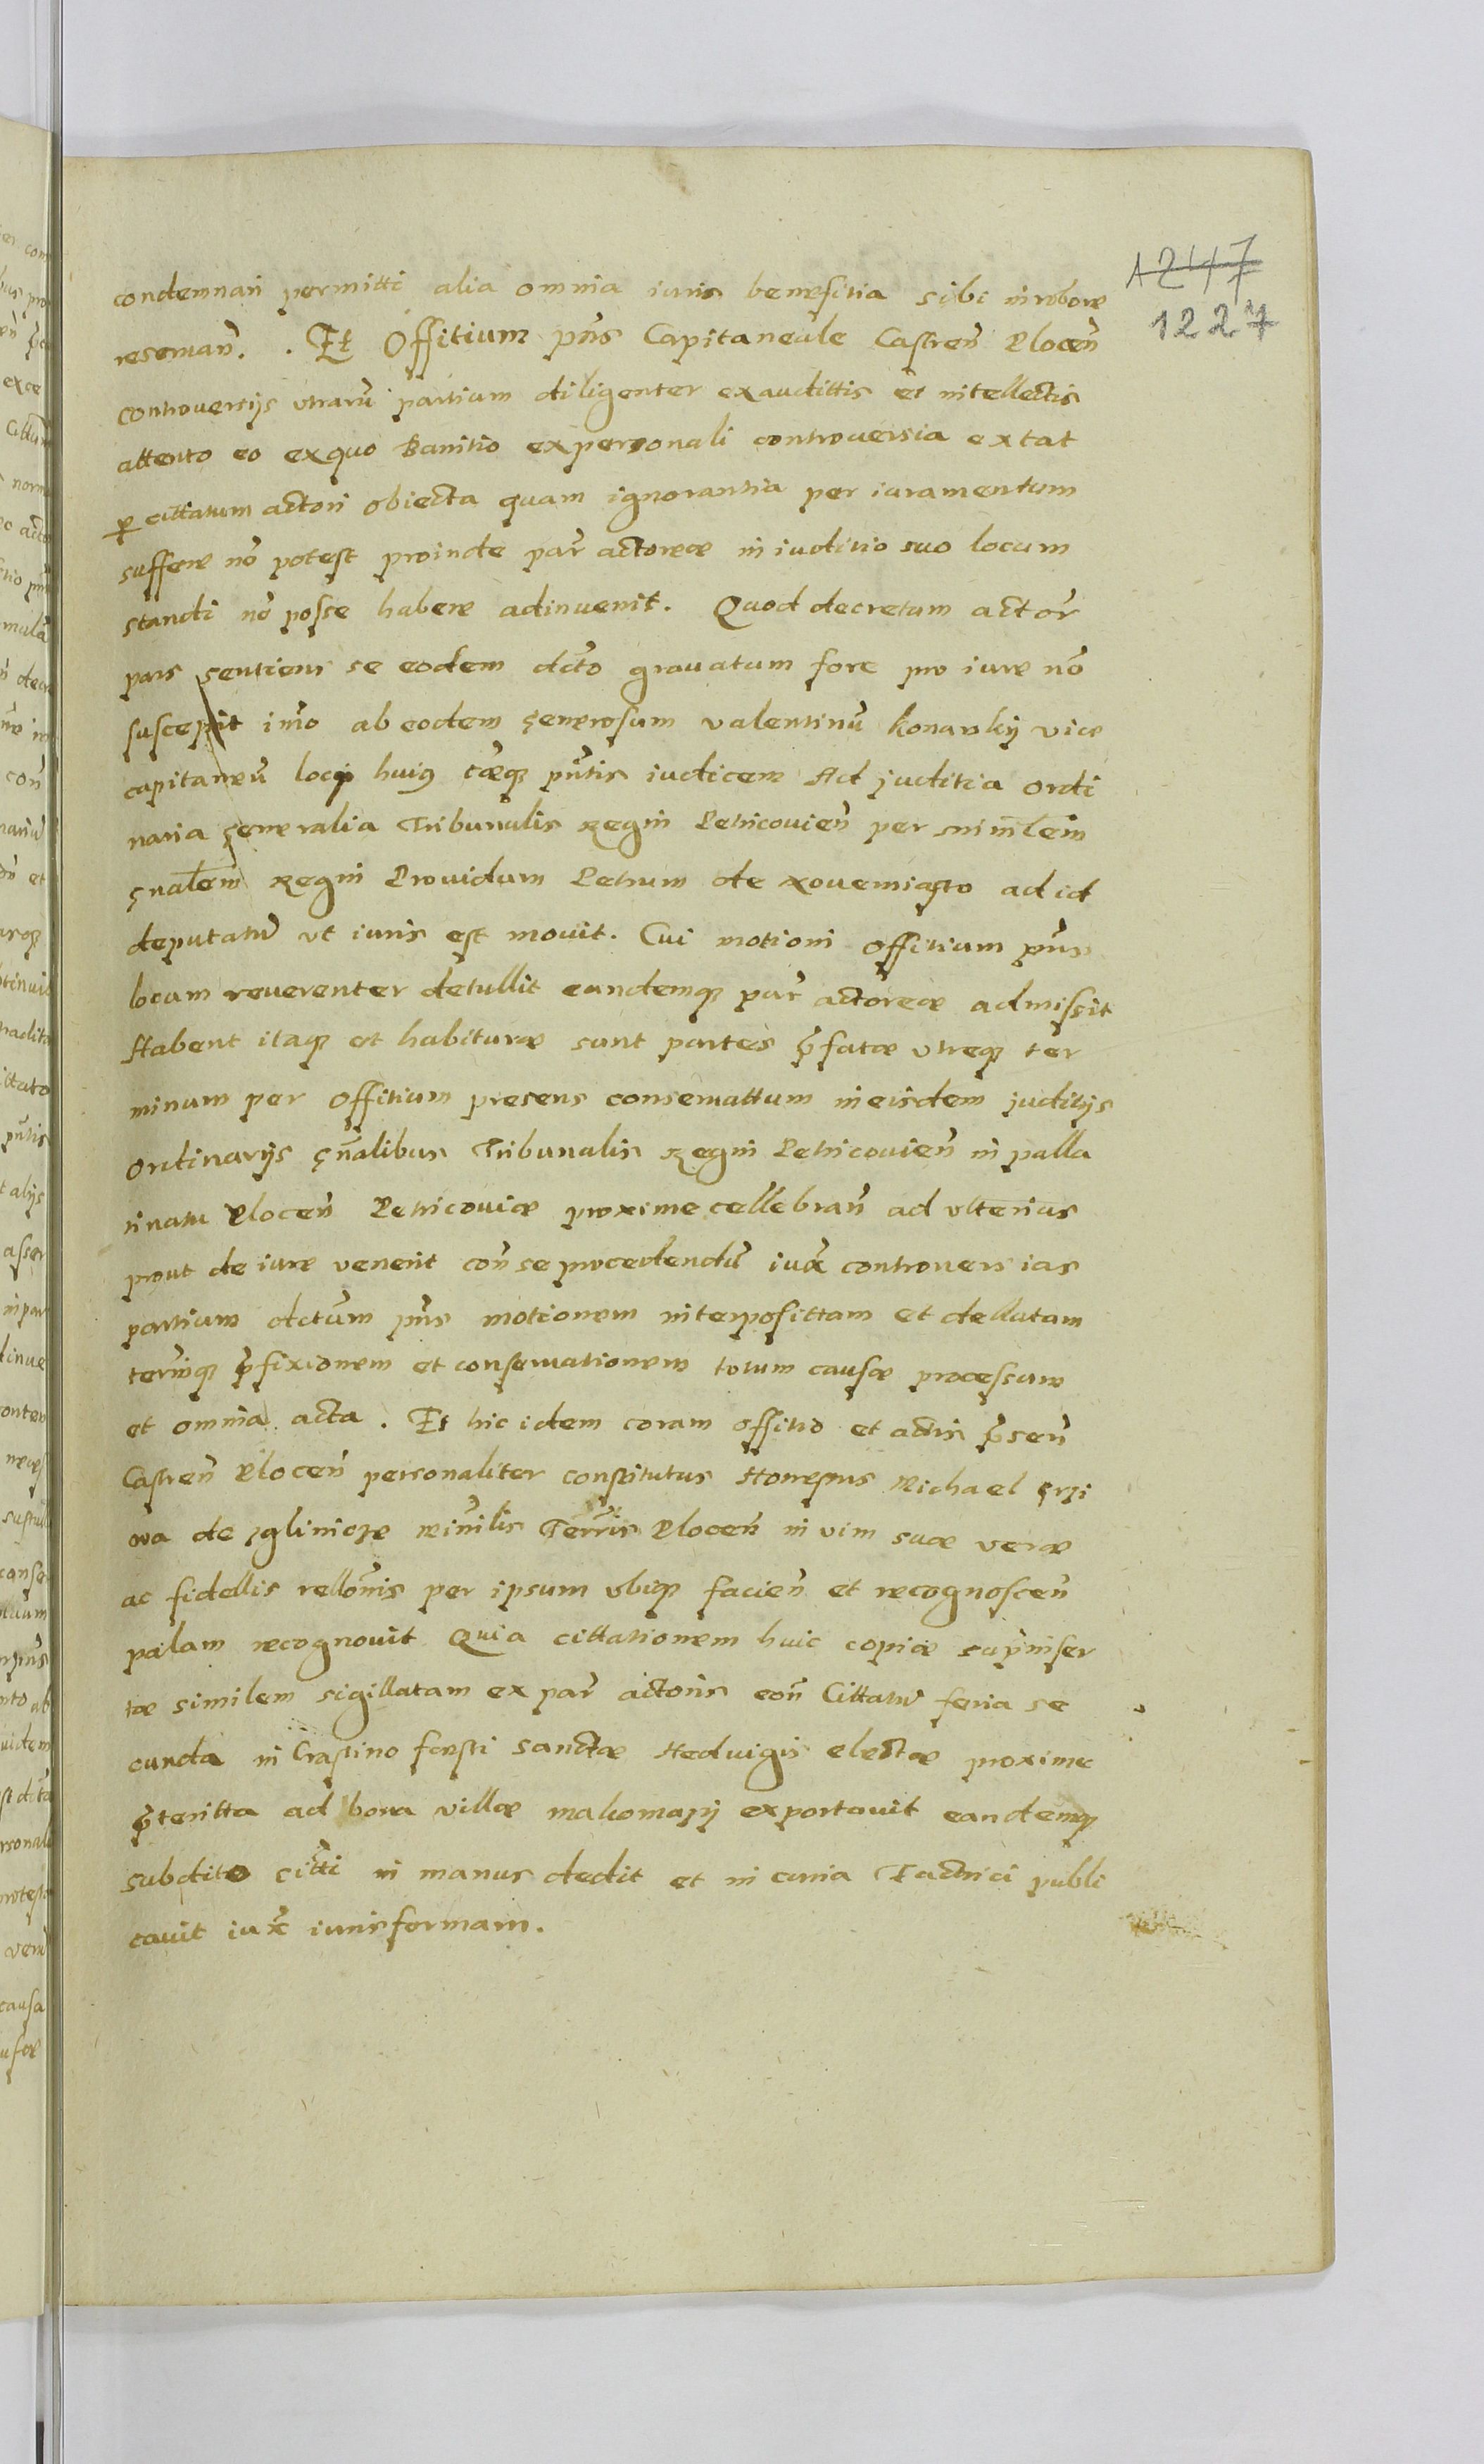 1247
1227
condemnari permitti alia omnia iuris benefitia sibi in robore
reseruan̄. . Et Offitium pn̄s Capitaneale Castren̄ Plocen̄
controuersijs vtrarū partium diligenter exaudittis et intellectis
attento eo ex quo Banitio ex personali controuersia extat
per cittatum actori obiecta quam ignorantia per iuramentum
sufferre nō potest proinde par̄ actoreæ in iuditio suo locum
standi nō posse habere adinuenit. Quod decretum actor̄
pars sentiens se eodem dcto grauatum fore pro iure nō
suscepit imo ab eodem generosum Valentinū Konarskij vice
capitaneū loci huius cæq pn̄tis iudicem Ad juditia ordi
naria generalia Tribunalis Regni Petricouien̄ per minlem
gnalem Regni Prouidum Petrum de Nouemiasto ad id
deputatū vt iuris est mouit. Cui motioni offitium pn̄s
locum reuerenter detullit eandemq par̄ actoreæ admissit
Habent itaq et habituræ sunt partes p̄fatæ vtreq ter
minum per offitium presens conseruattum in eisdem juditijs
ordinarijs gn̄alibus Tribunalis Regni Petricouien̄ in palla
tinatu Plocen̄ Petricouiæ proxime cellebran̄ ad vlterius
prout de iure venerit con̄ se procedendū iuxa controuersias
partium dctum pn̄s motionem interposittam et dellatam
terminq p̄fixionem et conseruationem totum causæ processum
et omnia acta. Et hic idem coram offitio et actis p̄sen̄
Castren̄ Plocen̄ personaliter constitutus Honestus Michael grzi
wa de zglinicze minrlis Terr̄is Plocen̄ in vim suæ veræ
ac fidellis rellonis per ipsum vbiq facien̄ et recognoscen̄
palam recognouit Quia cittationem huic copiæ supinser
tæ similem sigillatam ex par̄ actoris con̄ Cittatū feria se
cunda in Crastino festi Sanctæ Heduigis electæ proxime
p̄teritta ad bona villæ makomazij exportauit eandemq
subdito citti in manus dedit et in curia Factrici publi
cauit iuxa iuris formam.